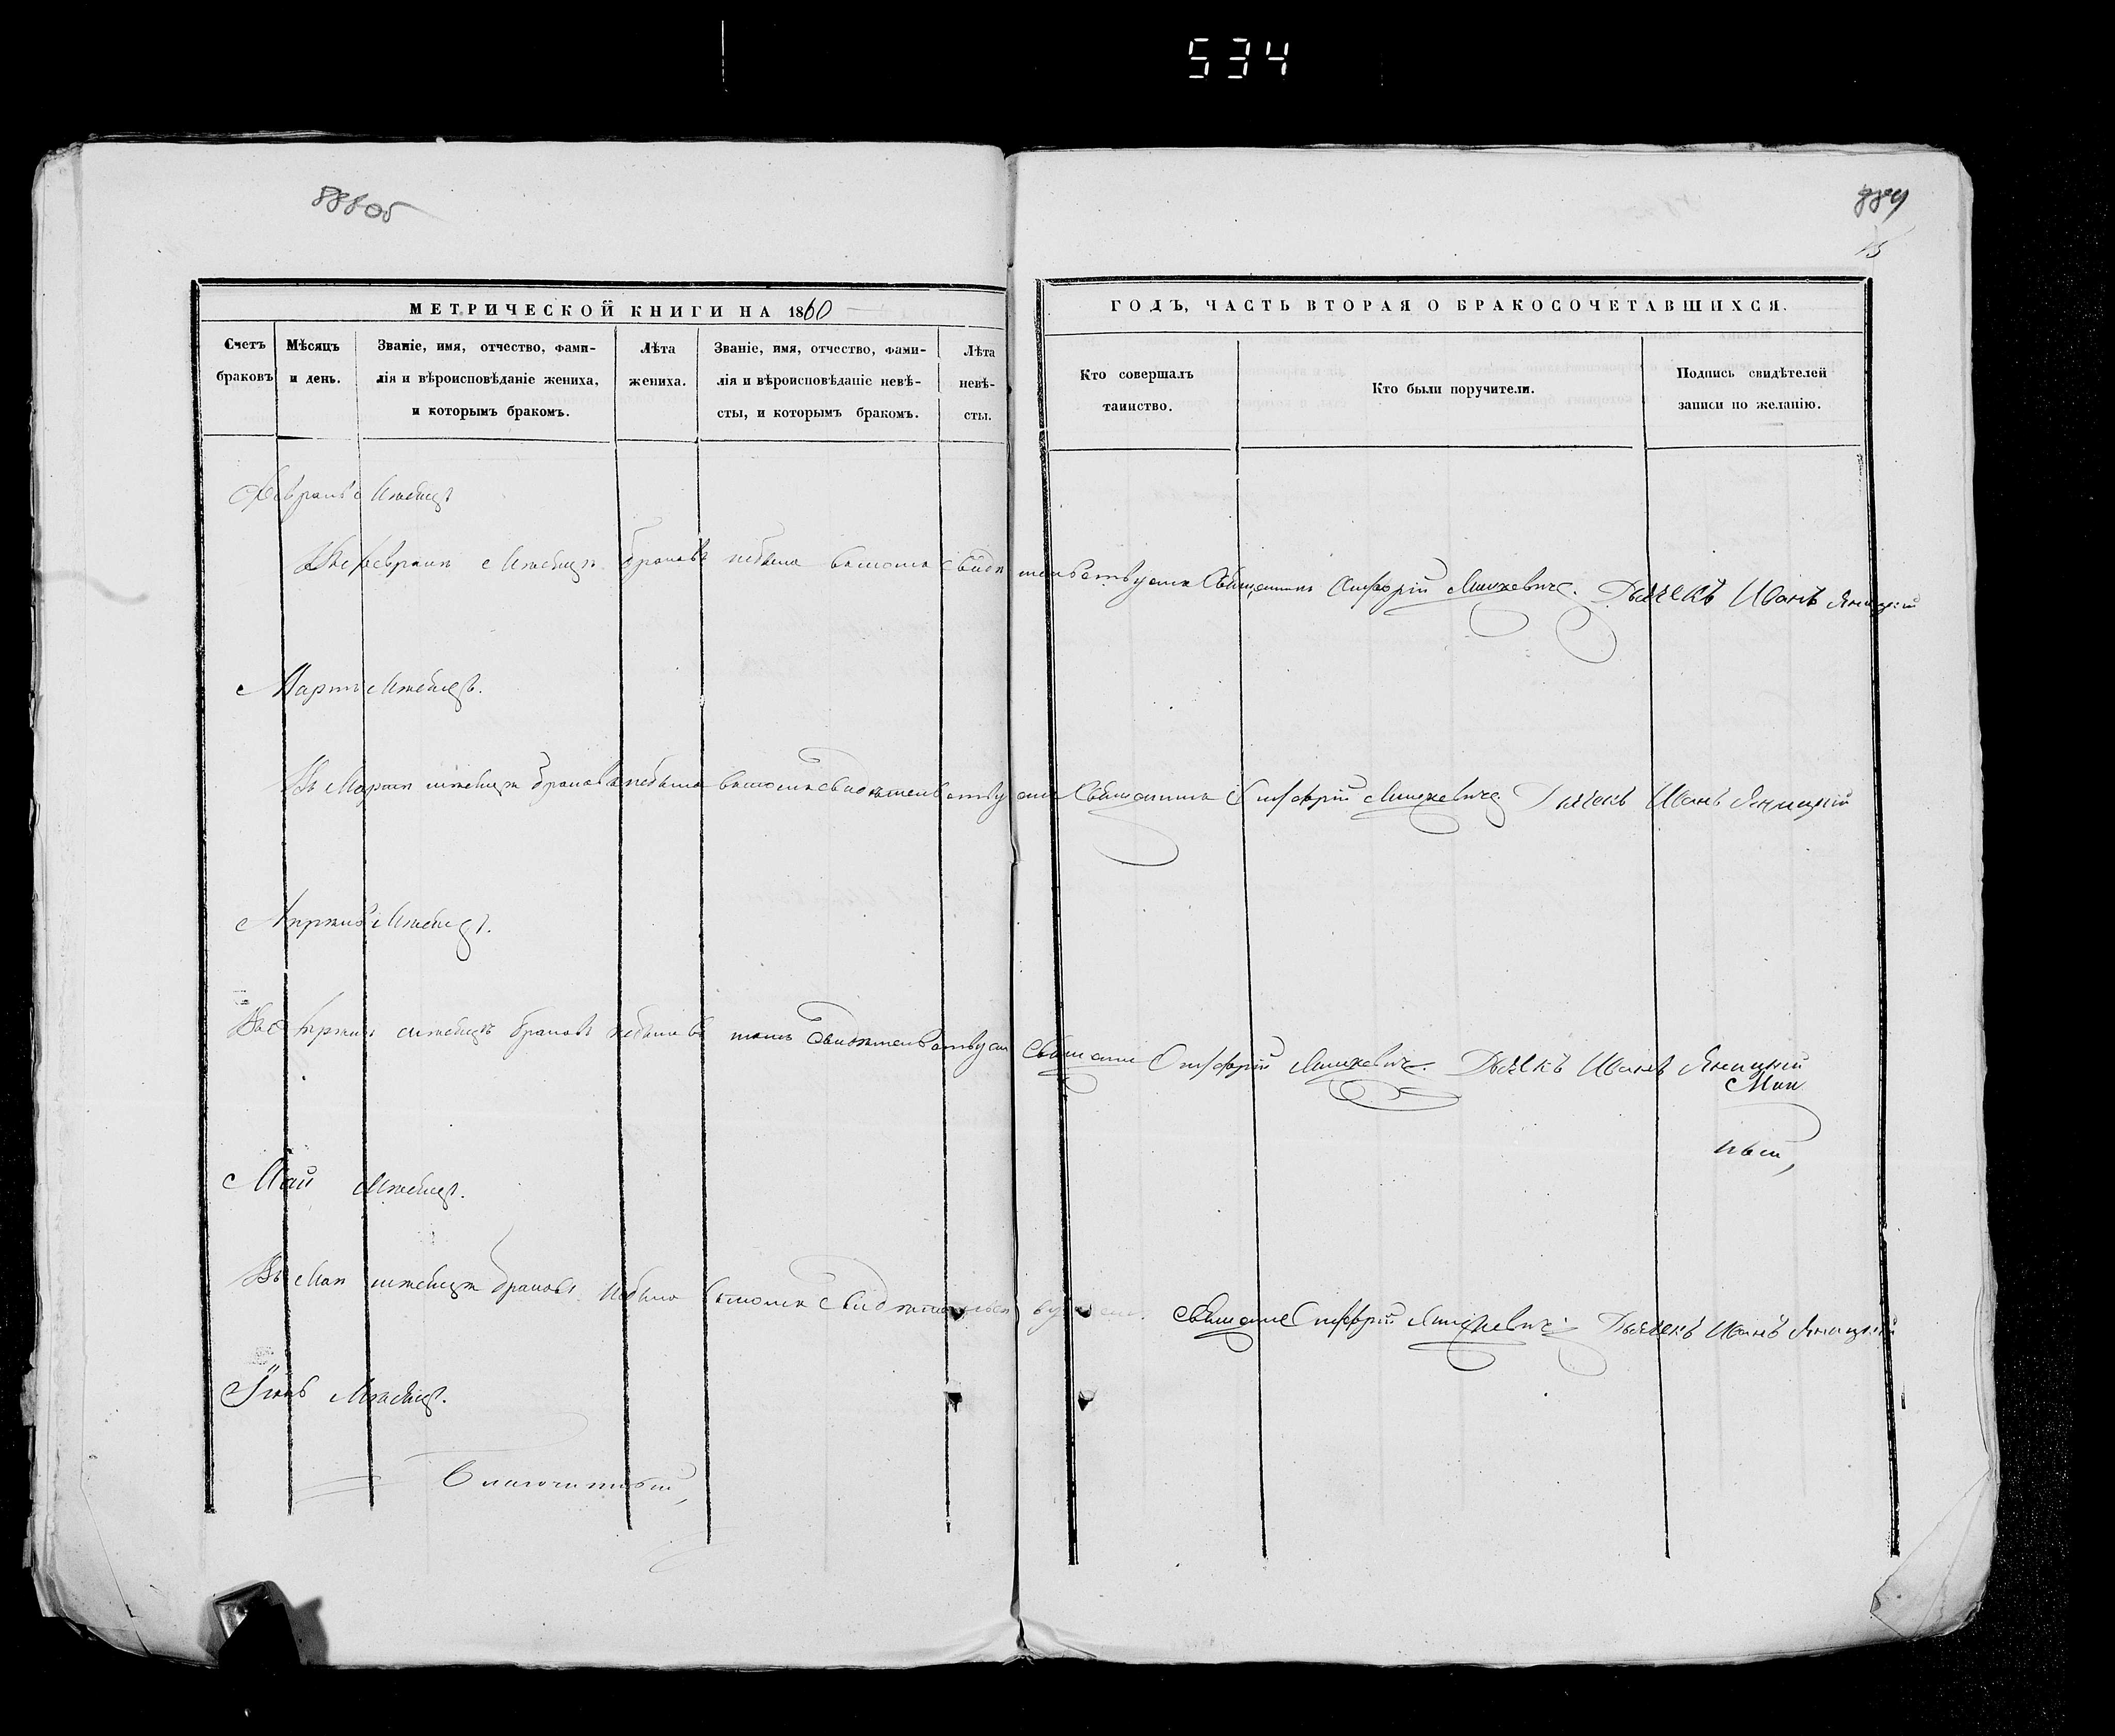 534
888об
889
15
МЕТРИЧЕСКОЙ КНИГИ НА 1860
ГОДЪ, ЧАСТЬ ВТОРАЯ О БРАКОСОЧЕТАВШИХСЯ.
Счетъ браковъ
Мѣсяцъ и день.
Званіе, имя, отчество, фами-
лія и вѣроисповѣданіе жениха,
и которымъ бракомъ.
Лѣта
жениха.
Званіе, имя, отчество, фами-
лія и вѣроисповѣданіе невѣ-
сты, и которымъ бракомъ.
Лѣта
невѣ-
сты.
Кто совершалъ
таинство.
Кто были поручители.
Подпись свидѣтелей
записи по желанію.
Февраль Мѣсяцъ
Въ Февралѣ Мѣсяцѣ браковъ небыло вътомъ свидѣтельствуемъ Священникъ Дьячекъ Иванъ Яницкій
Мартъ Мѣсяцъ.
Въ Мартѣ мѣсяцѣ браковъ небыло вътомъ свидѣтельствуемъ Священникъ Дьячекъ Иванъ Яницкій
Апрѣль Мѣсяцъ.
Въ Апрѣлѣ мѣсяцѣ браковъ небыло въ томъ свидѣтельствуемъ Дьячекъ Иванъ Яницкій
Май Мѣсяцъ.
Въ Маѣ мѣсяцѣ браковъ небыло вътомъ Дьячекъ Иванъ Яницкій
Іюнь Мѣсяцъ.